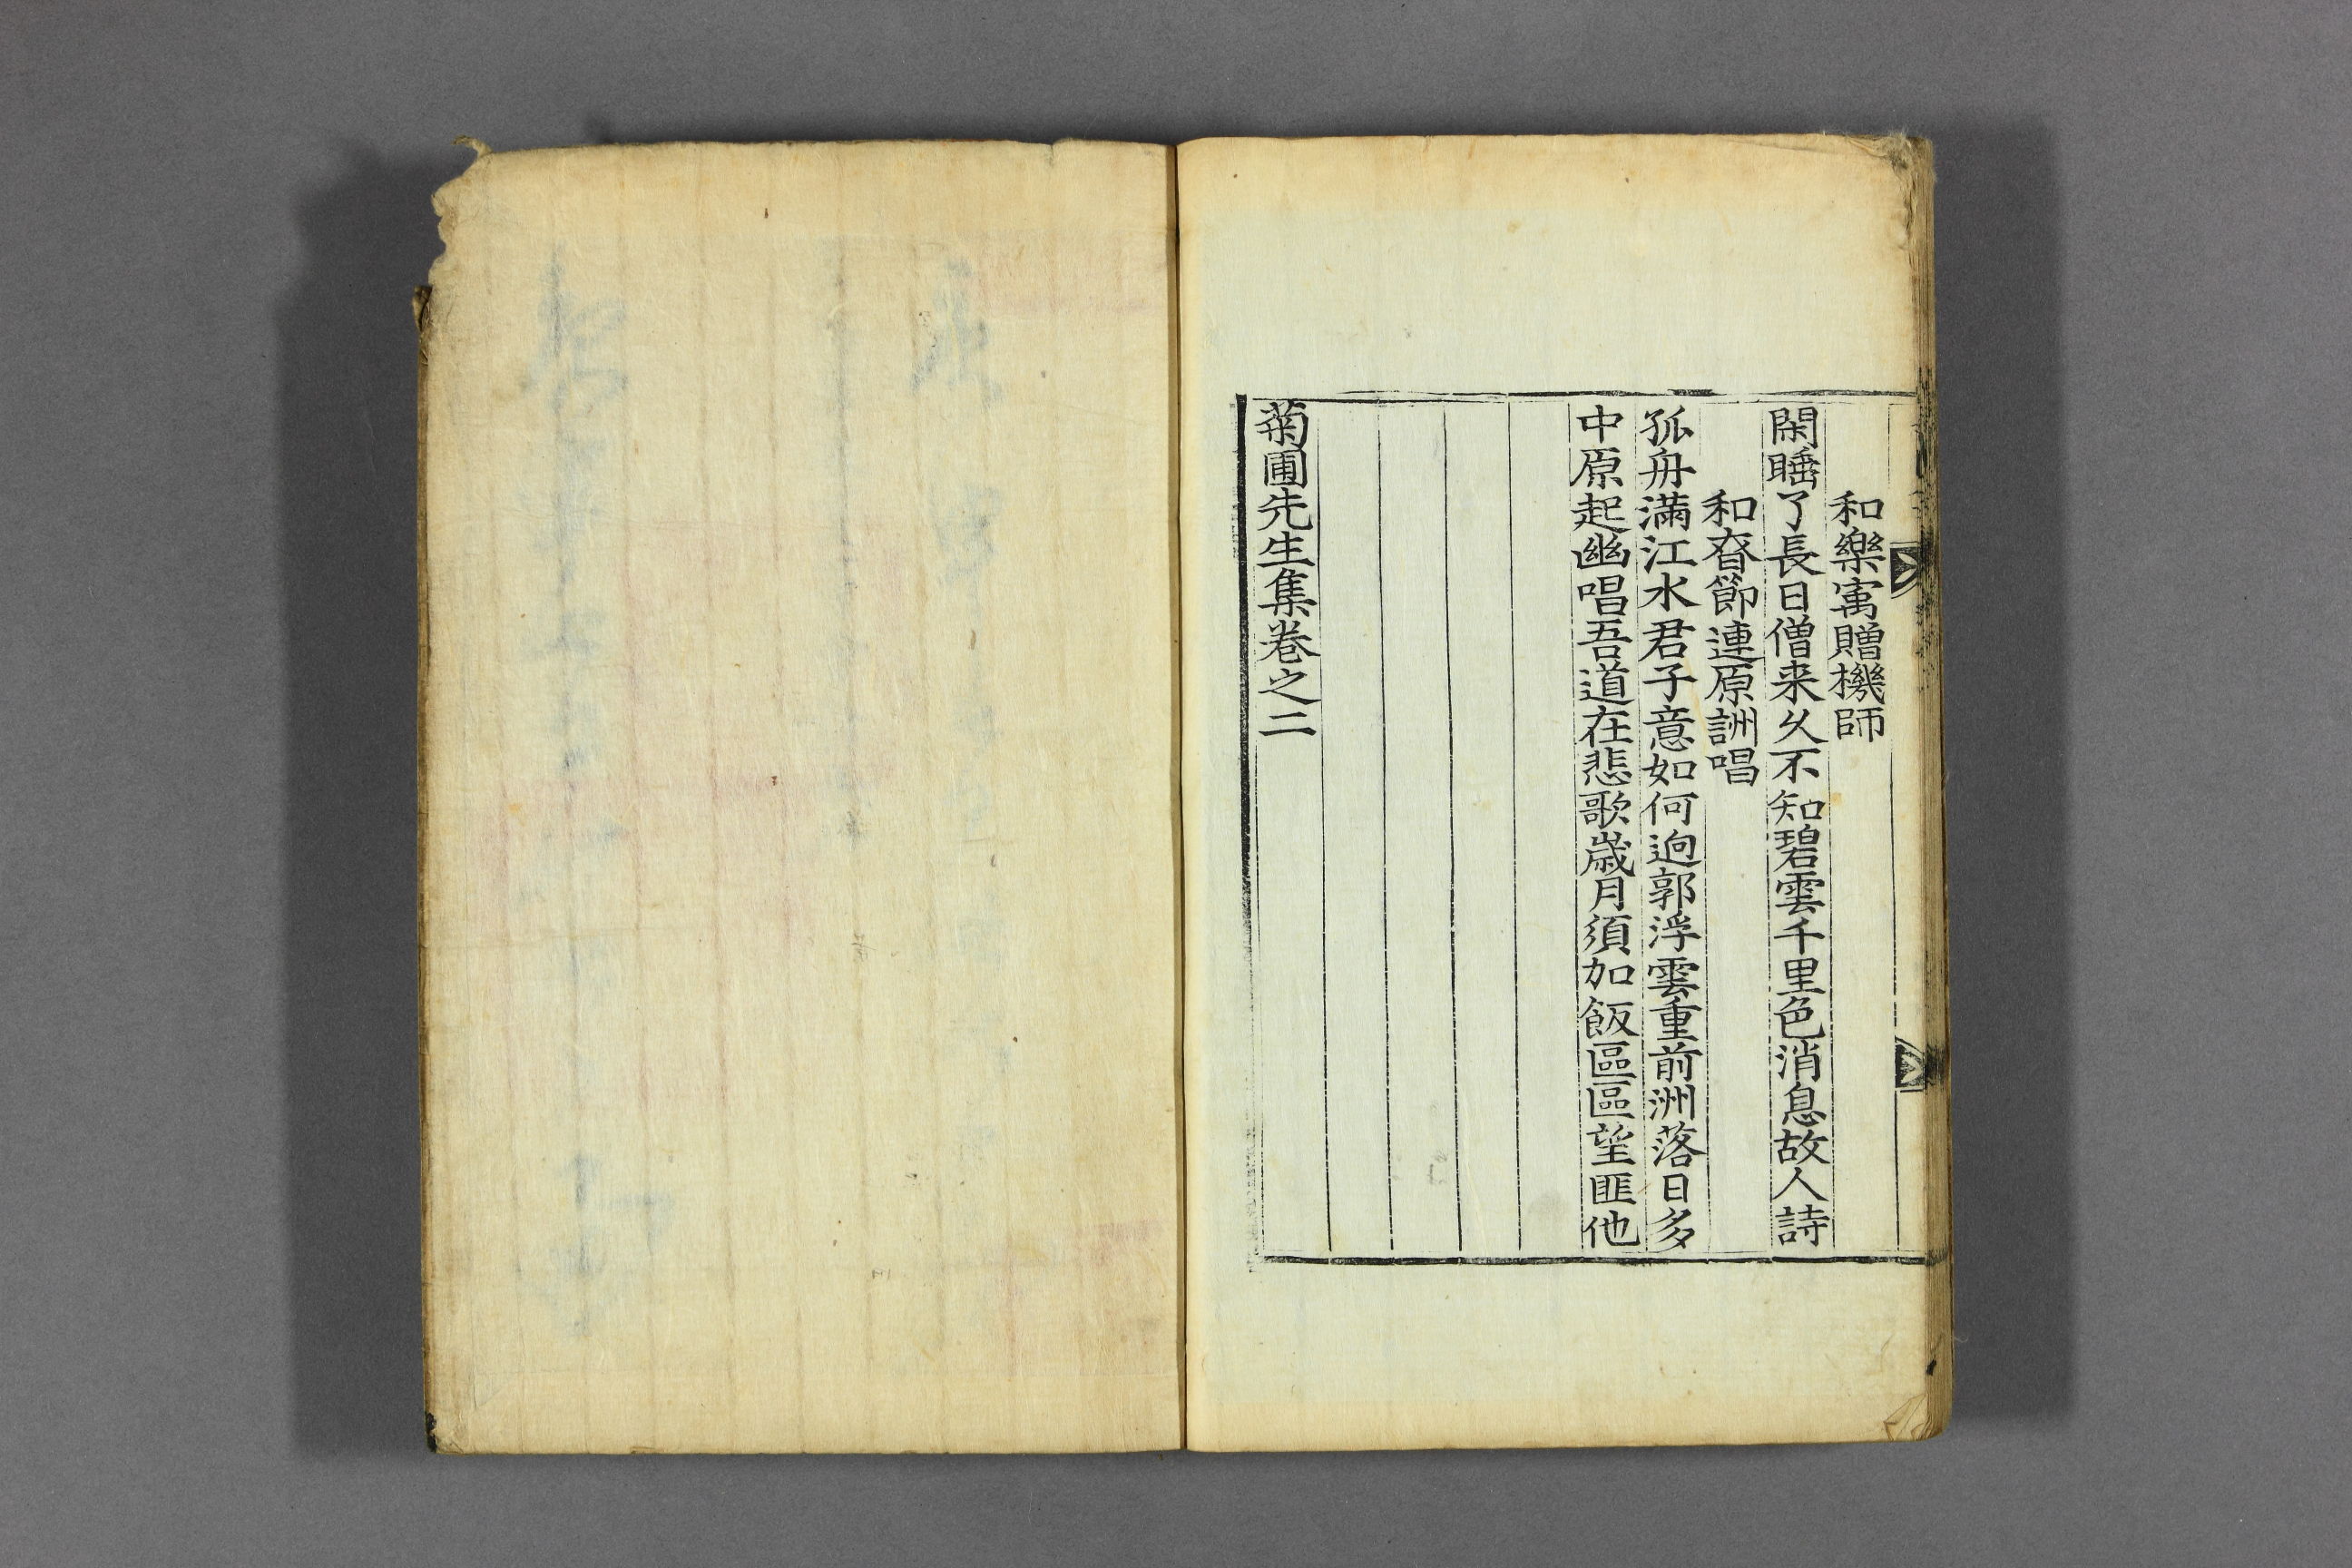 和樂寓贈機師
閑睡了長日僧来久不知碧雲千里色消息故人詩
和昚節連原詶唱
孤舟滿江水君子意如何逈郭浮雲重前洲落日多
中原起幽唱吾道在悲歌歲月須加飯區區望匪他
菊圃先生集卷之二